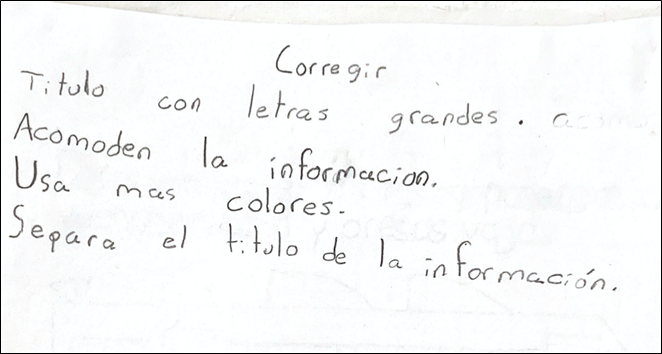 Corregir
Titulo con letras grandes.
Acomoden la informacion.
Usa mas colores.
Separa el titulo de la información.